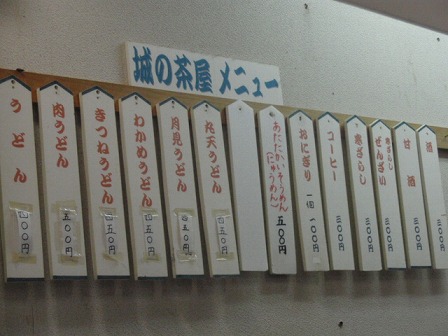 城の茶屋 メニュー
うどん 四〇〇円
肉うどん 五五〇円
きつねうどん 四五〇円
わかめうどん 四五〇円
月見うどん 四五〇円
丸天うどん 四五〇円
あたたかいそうめん
(にゅうめん) 五〇〇円
おにぎり 一個 一〇〇円
コーヒー 三〇〇円
寒ざらし 三〇〇円
寒ざらし
ぜんざい 三〇〇円
甘酒 三〇〇円